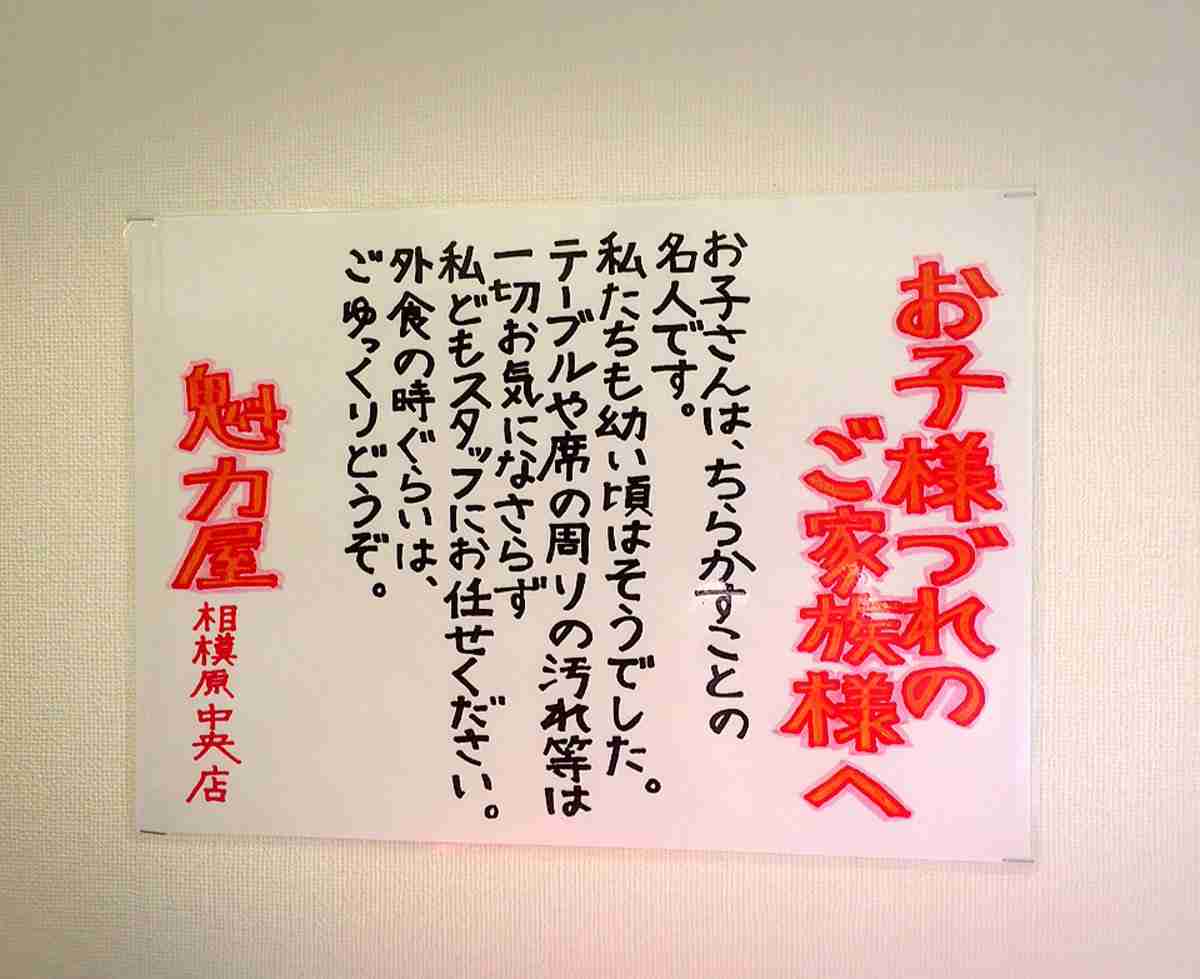 お子様づれの
ご家族様へ
お子さんは、ちらかすことの
名人です。
私たちも幼い頃はそうでした。
テーブルや席の周りの汚れ等は
一切お気になさらず
私どもスタッフにお任せください。
外食の時ぐらいは、
ごゆっくりどうぞ。
魁力屋
相模原中央店